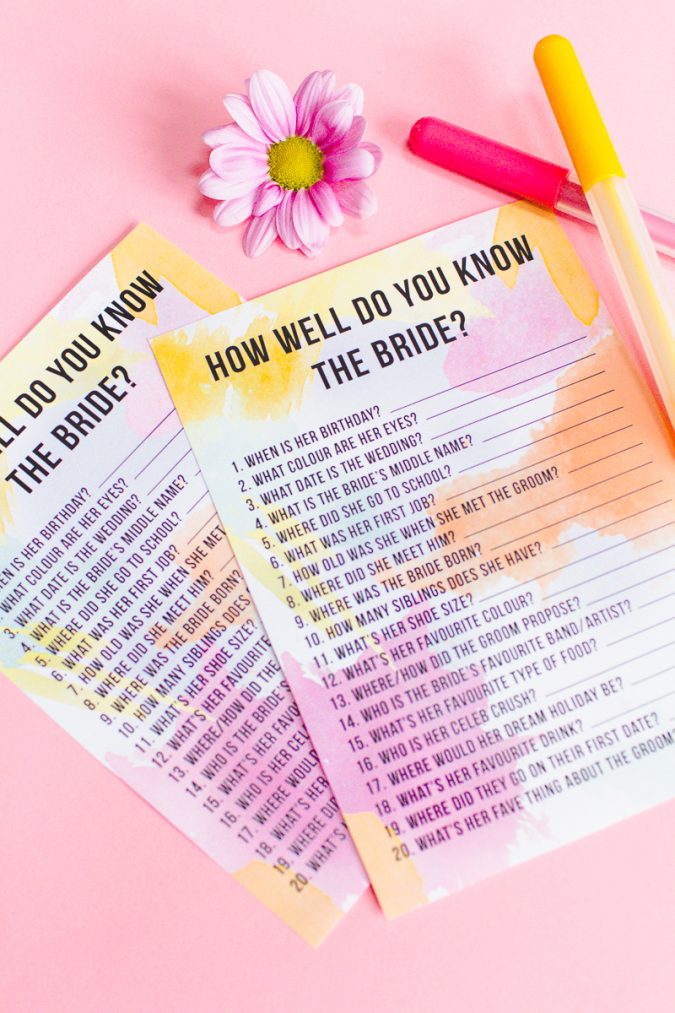 HOW WELL DO YOU KNOW
THE BRIDE?
1. WHEN IS HER BIRTHDAY?
2. WHAT COLOUR ARE HER EYES?
3. WHAT DATE IS THE WEDDING?
4. WHAT IS THE BRIDE'S MIDDLE NAME?
5. WHERE DID SHE GO TO SCHOOL?
6. WHAT WAS HER FIRST JOB?
7. HOW OLD WAS SHE WHEN SHE MET THE GROOM?
8. WHERE DID SHE MEET HIM?
9. WHERE WAS THE BRIDE BORN?
10. HOW MANY SIBLINGS DOES SHE HAVE?
11. WHAT'S HER SHOE SIZE?
12. WHAT'S HER FAVOURITE COLOUR?
13. WHERE/HOW DID THE GROOM PROPOSE?
14. WHO IS THE BRIDE'S FAVOURITE BAND/ARTIST?
15. WHAT'S HER FAVOURITE TYPE OF FOOD?
16. WHO IS HER CELEB CRUSH?
17. WHERE WOULD HER DREAM HOLIDAY BE?
18. WHAT'S HER FAVOURITE DRINK?
19. WHERE DID THEY GO ON THEIR FIRST DATE?
20. WHAT'S HER FAVE THING ABOUT THE GROOM?
DO YOU KNOW
THE BRIDE?
IS HER BIRTHDAY?
COLOUR ARE HER EYES?
3. WHAT DATE IS THE WEDDING?
4. WHAT IS THE BRIDE'S MIDDLE NAME?
5. WHERE DID SHE GO TO SCHOOL?
6. WHAT WAS HER FIRST JOB?
7. HOW OLD WAS SHE WHEN SHE MET
8. WHERE DID SHE MEET HIM?
9. WHERE WAS THE BRIDE BORN?
10. HOW MANY SIBLINGS DOES
11. WHAT'S HER SHOE SIZE?
12. WHAT'S HER FAVOURITE
13. WHERE/HOW DID THE
14. WHO IS THE BRIDE'S
15. WHAT'S HER
16. WHO IS HER CELEB
17. WHERE WOULD
18. WHAT'S HER
19. WHERE DID
20. WHAT'S